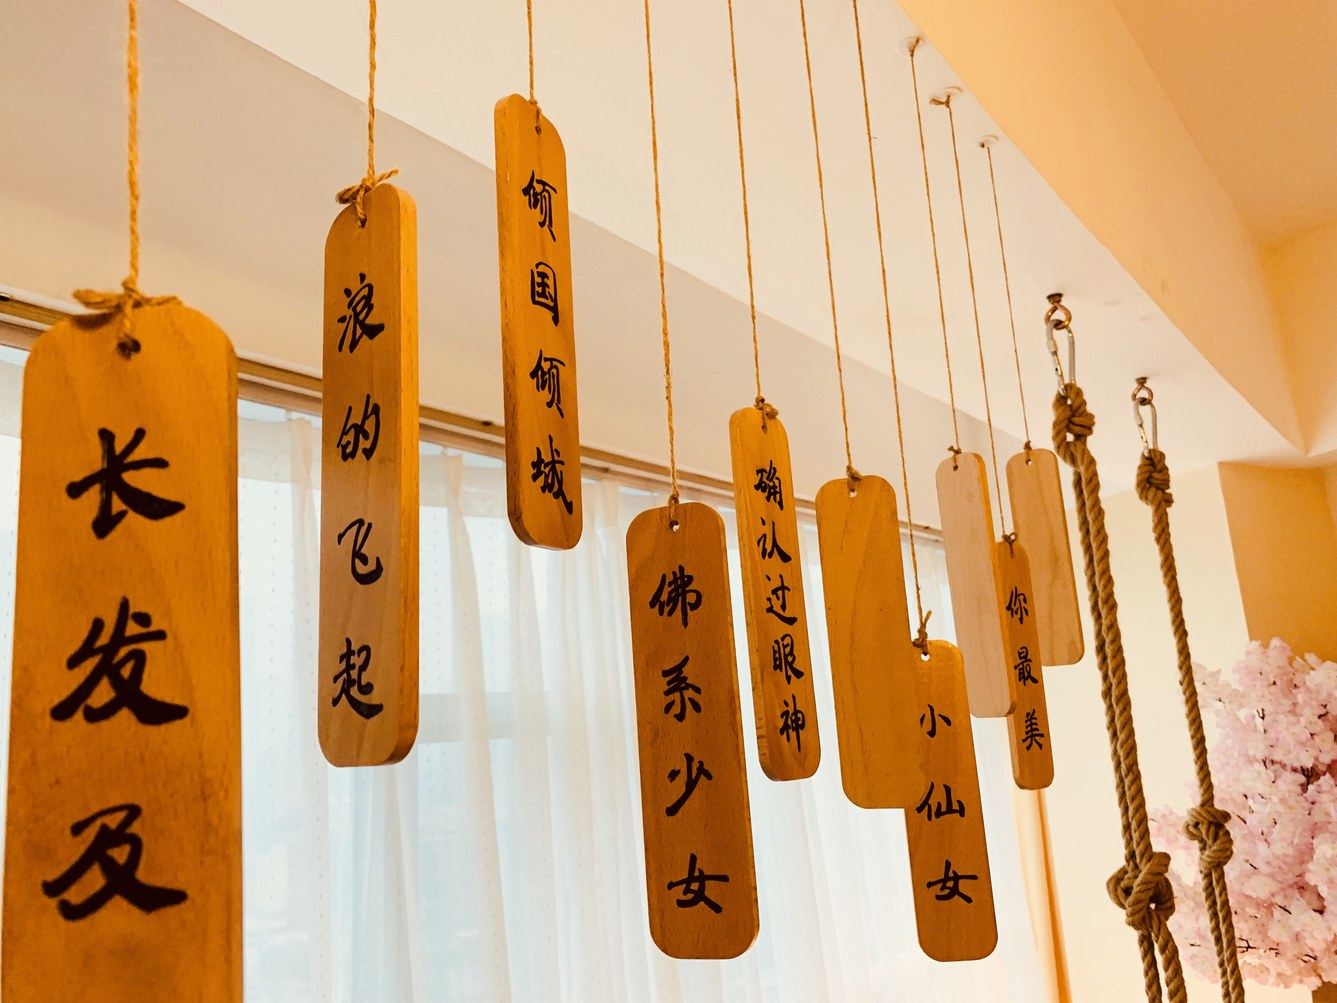 长发及
浪的飞起
倾国倾城
佛系少女
确认过眼神
小仙女
你最美